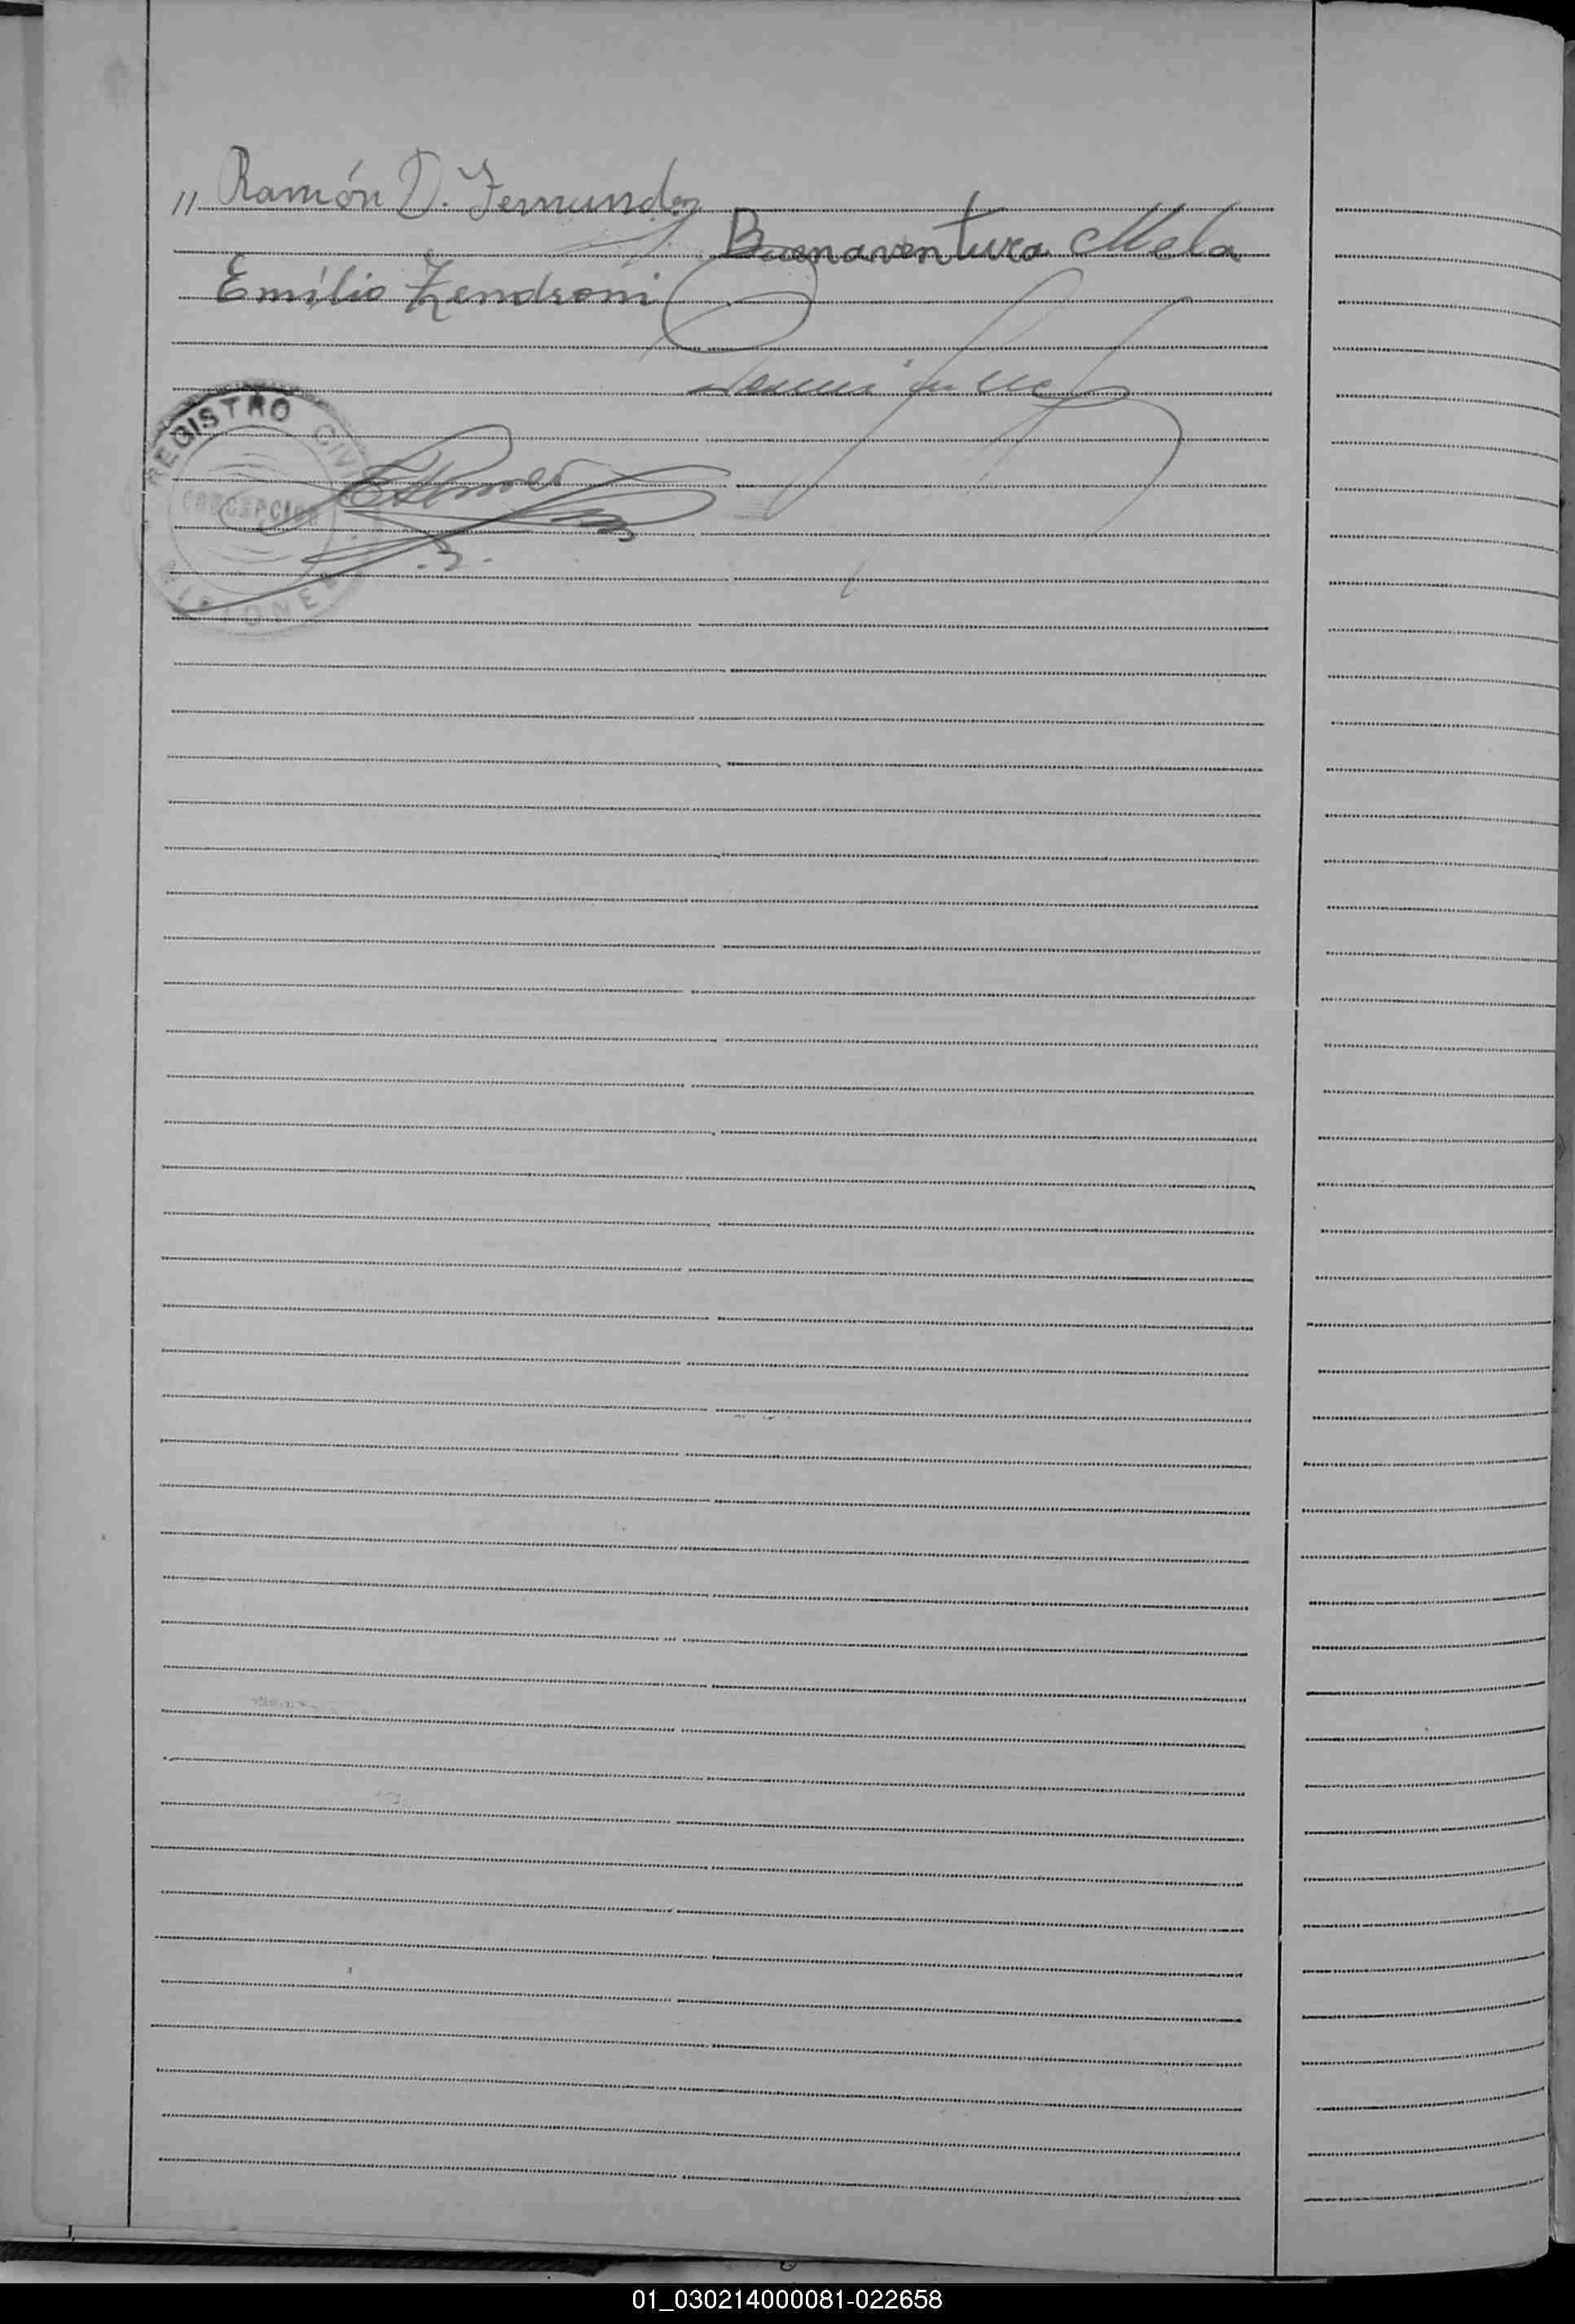 " Ramón D. Fernandez
Buenaventura Mela
Emilio Zendroni
REGISTRO CIVIL
CONCEPCION
MISIONES
01_030214000081-022658